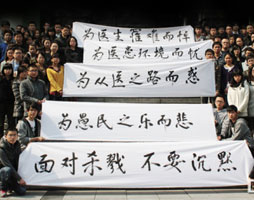 为医生罹难而悼
为医患环境而忧
为从医之路而惑
为愚民之乐而悲
面对杀戮 不要沉默